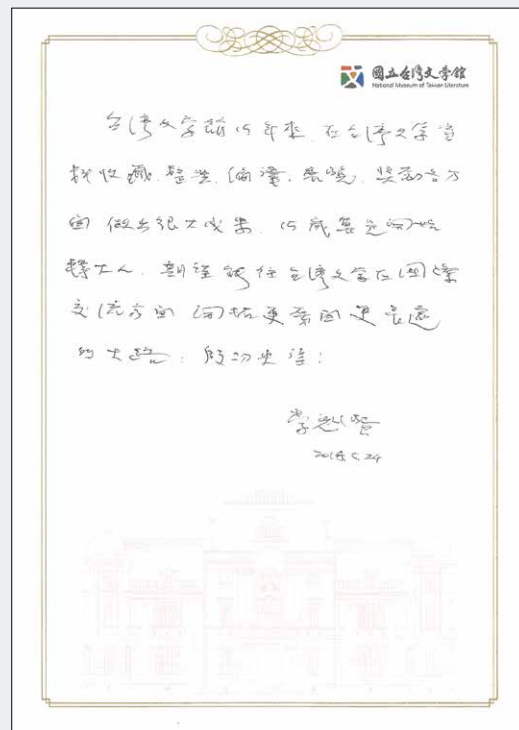 國立台灣文學館
National Museum of Taiwan Literature
台湾文学館15年來,在台湾文学資
料收藏、整理、編譯、展覽、獎勵各方
面做出很大成果,15歲算是開始
轉大人,期望能往台湾文学在國際
交流方面開拓更寬闊更長遠
的大路,
李魁賢
2018.5.24